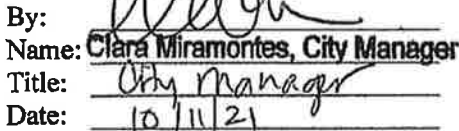 By:
Name: Clara Miramontes, City Manager
Title: City Manager
Date: 10/11/21